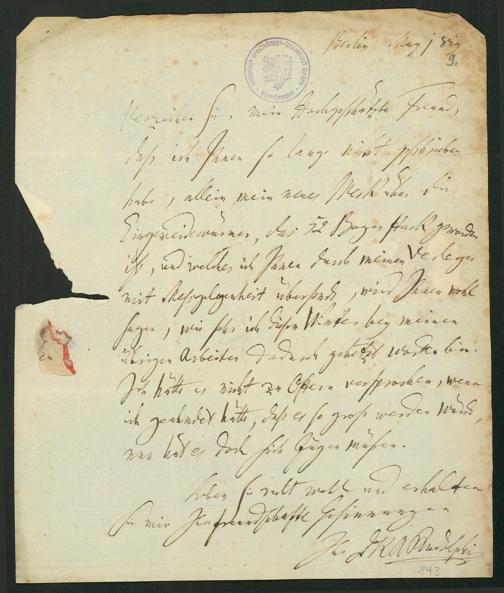 Berlin May 1 819
9.
Verzeihen Sie, mein Hochgeschätzter Freund,
daß ich Ihnen so lange nicht geschrieben
habe, allein mein neues Werk über die
Eingeweidewürmer, das 52 Bogen stark geworden
ist, und welches ich Ihnen durch meinen Verleger
mit Meßgelegenheit übersende, wird Ihnen wohl
sagen, wie sehr ich diesen Winter bey meinen
übrigen Arbeiten dadurch gehetzt worden bin.
Ich hätte es nicht zu Ostern versprochen, wenn
ich geahndet hätte, daß es so groß werden würde,
nun hat es doch sich fügen müßen.
Leben Sie recht wohl und erhalten
Sie mir Ihre freundschaftl. Gesinnungen
Ihr DKARudolphi
843